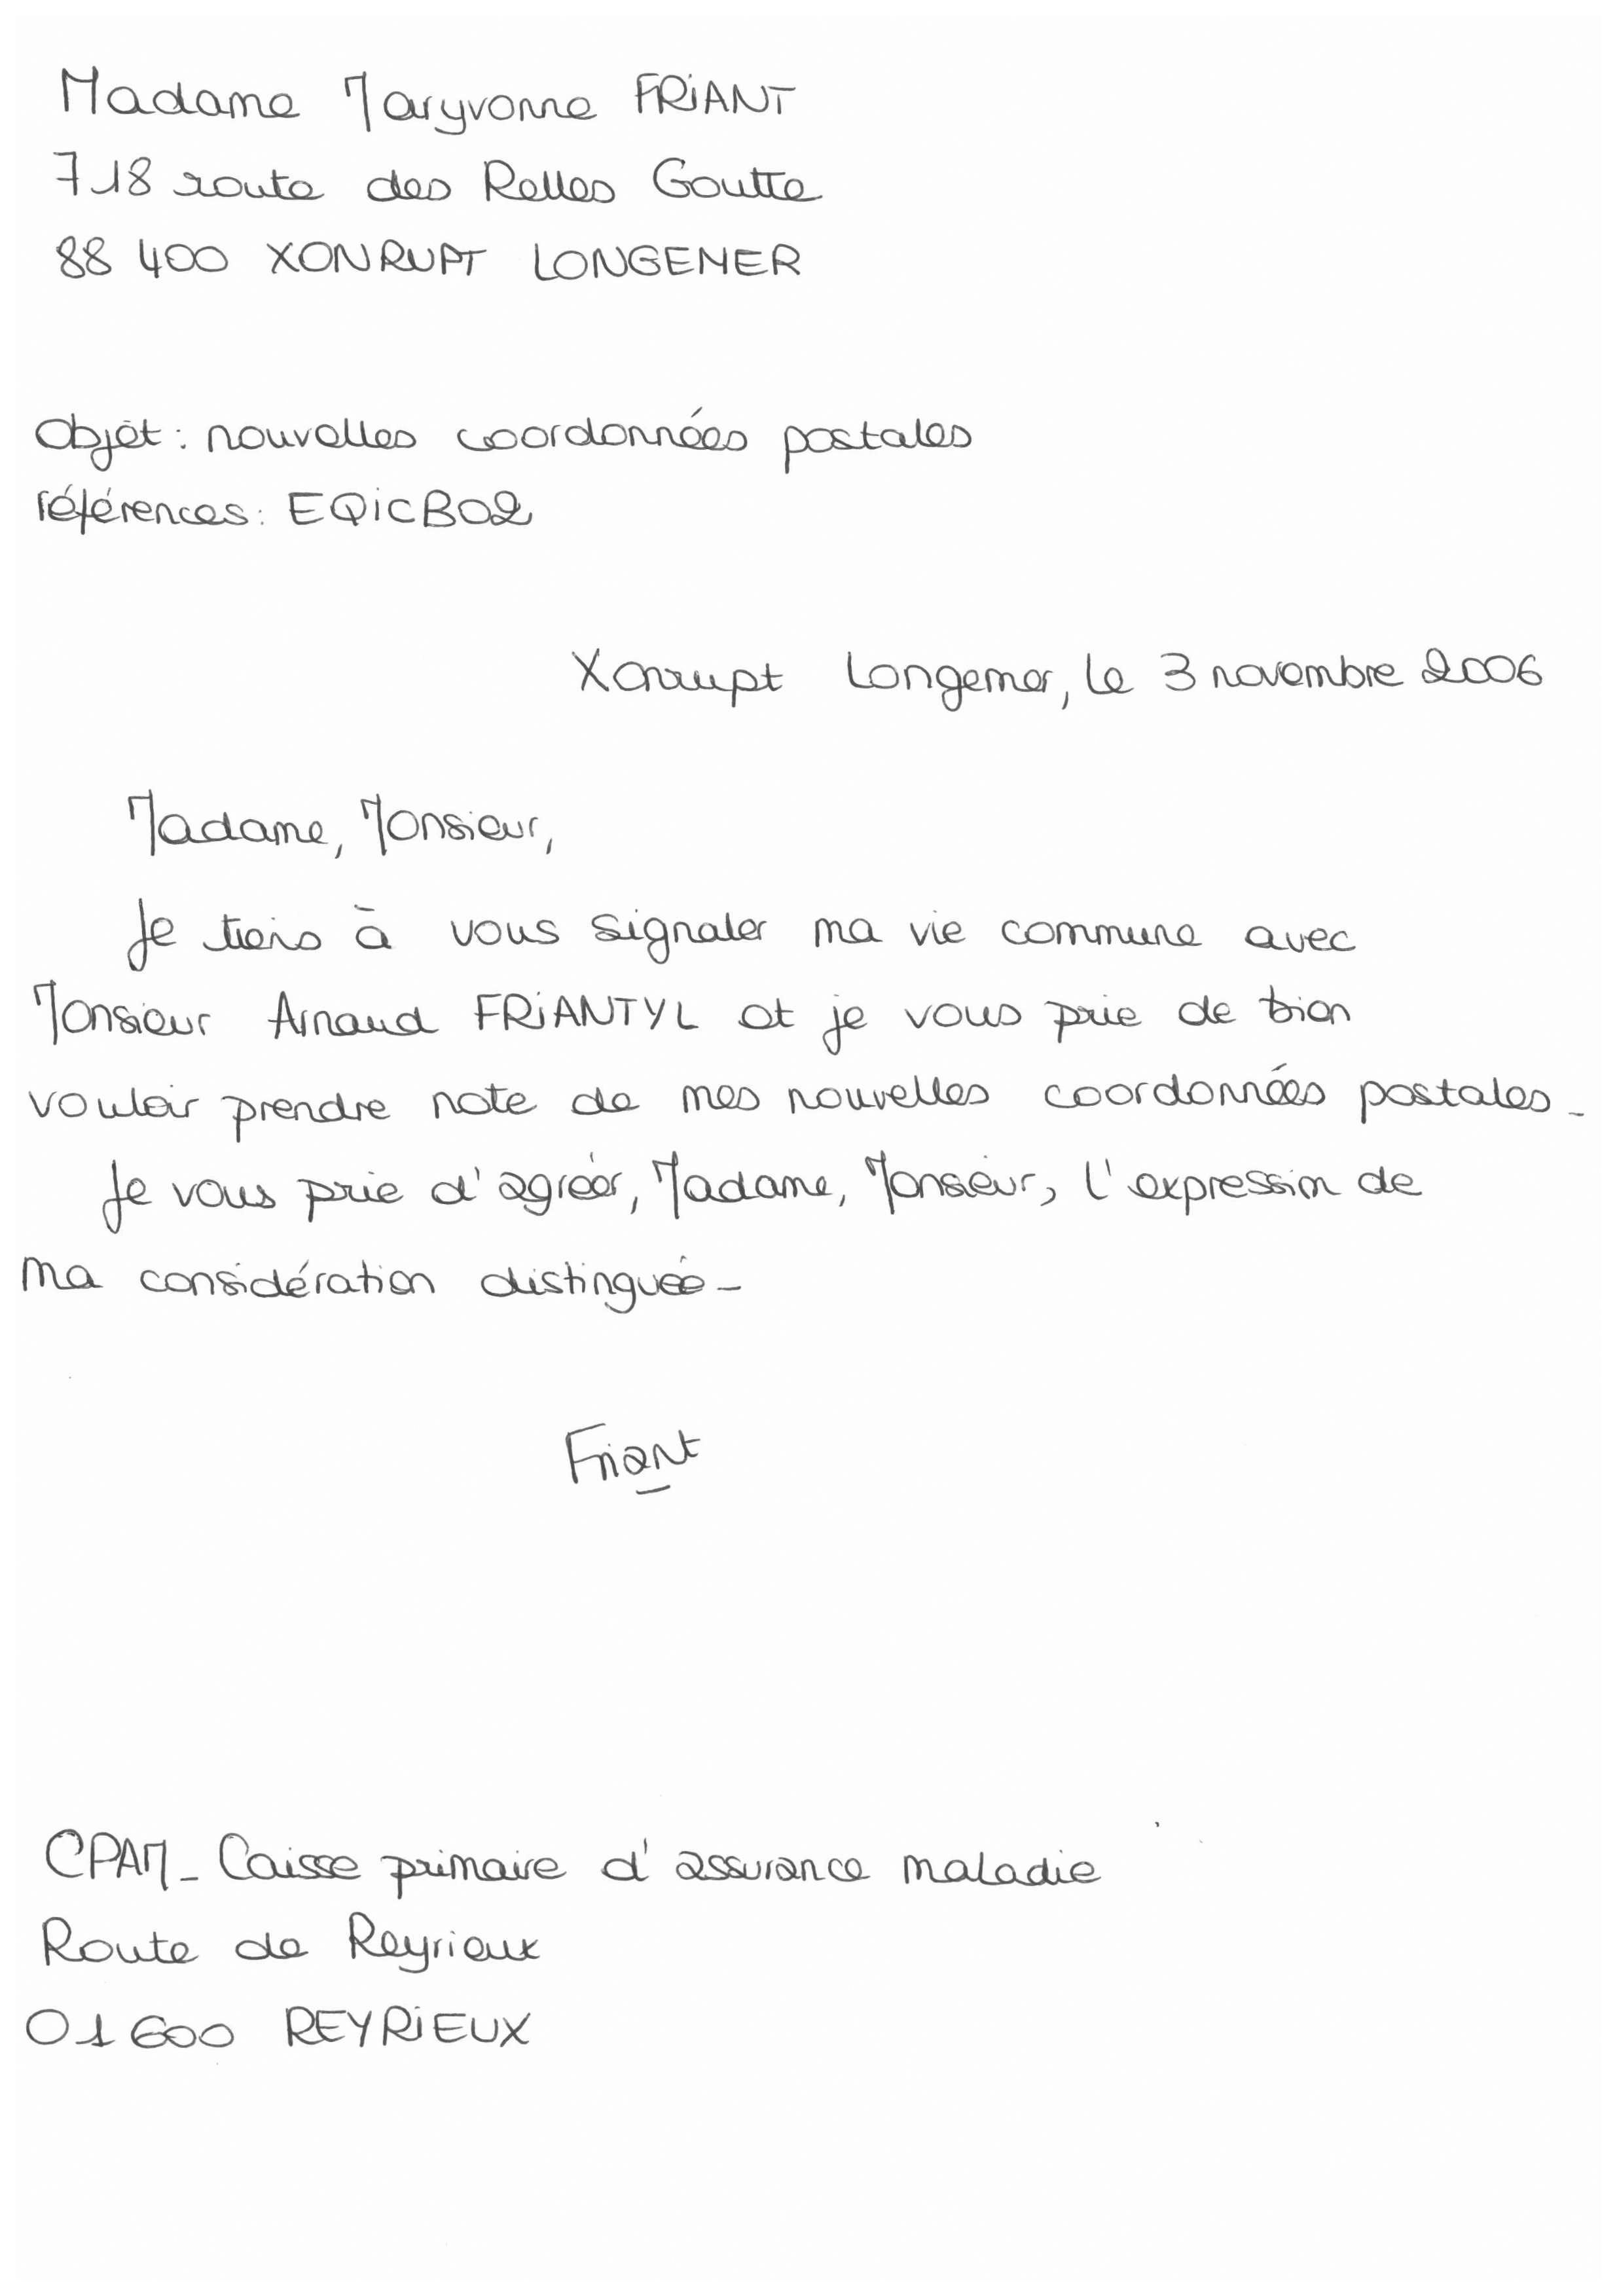 Madame Maryvonne FRIANT
718 route des Relles Goutte
88 400 XONRUPT LONGEMER
Objet : nouvelles coordonnées postales
références : EQICB02
Xonrupt Longemer, le 3 novembre 2006
Madame, Monsieur,
Je tiens à vous signaler ma vie commune avec
Monsieur Arnaud FRIANTYL et je vous prie de bien
vouloir prendre note de mes nouvelles coordonnées postales.
Je vous prie d'agréer, Madame, Monsieur, l'expression de
ma considération distinguée.
Friant
CPAM - Caisse primaire d'assurance maladie
Route de Reyrieux
01600 REYRIEUX